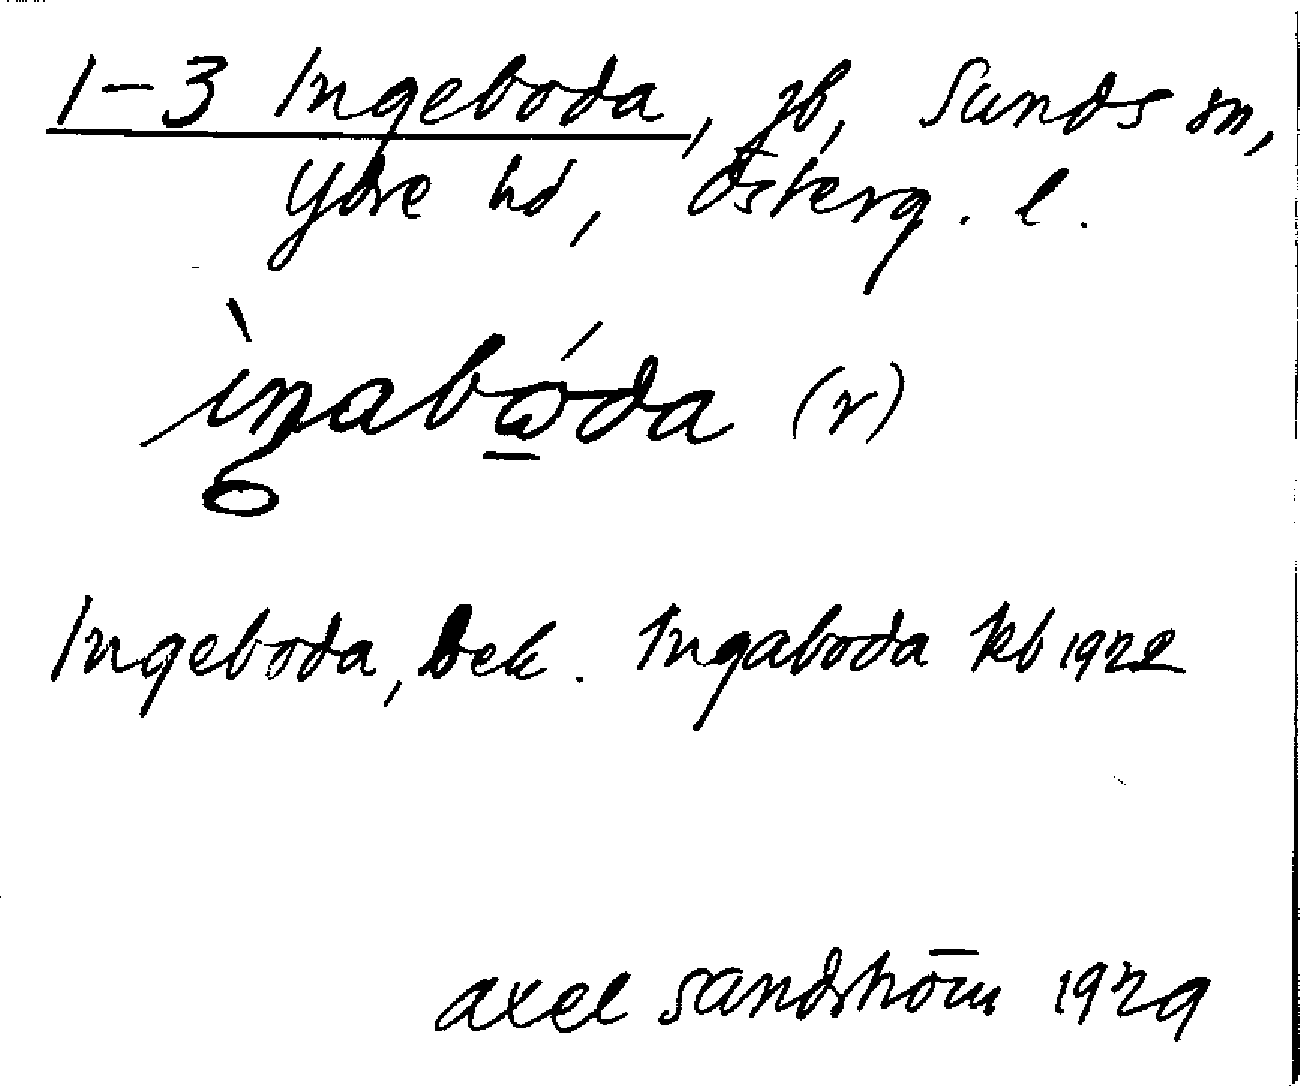 1-3 Ingeboda, gb, Sunds sn,
Ydre hd, Österg. l.
ìŋabǿda (r)
Ingeboda, bek. Ingaboda kb 1922
Axel Sandström 1929